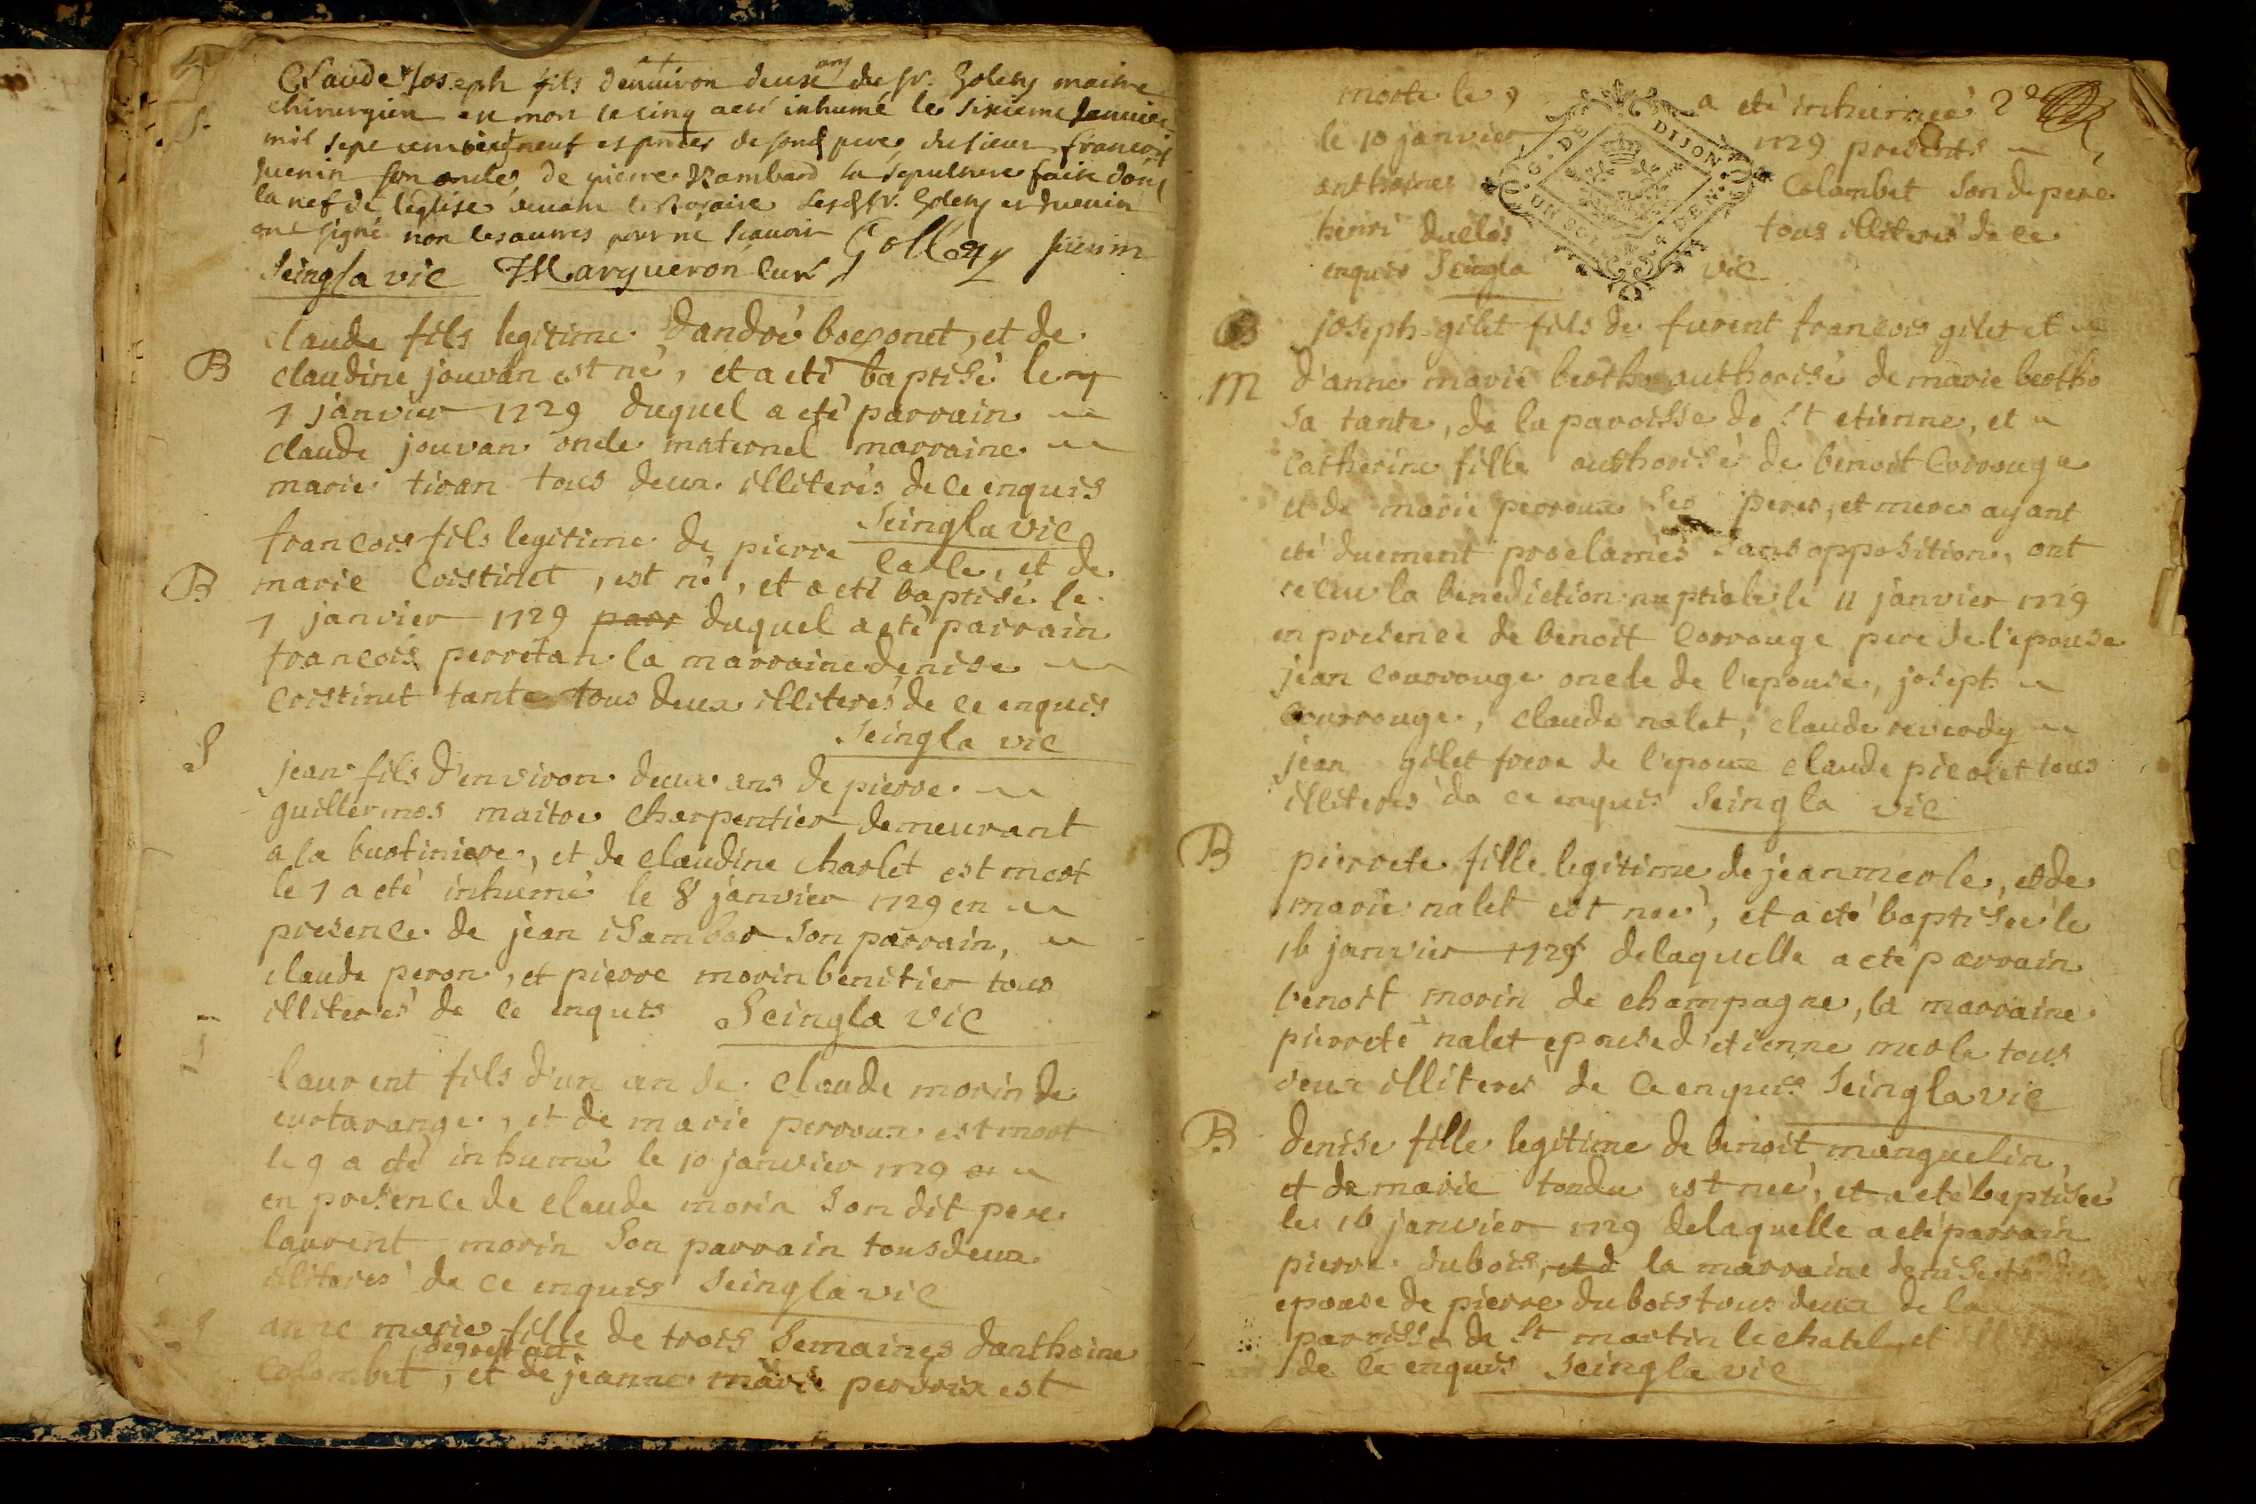 Claude Joseph fils denuiron deux ans du sr. Golety maitre
chirurgien est mort le cinq a eté inhumé le sixieme Januier
mil sept cent vingt neuf es pntes de son pere du sieur francois
Juenin son oncle de pierre Rambard la sepulture faite dans
la nef de l'eglise deuant le Rosaire Lesd sr. Golety et Juenin
ont signé non les autres pour ne scauoir Golety Jüenin
Seingla vic Marqueron Curé
S
claude fils legitime d'andré boexonet, et de
B
claudine jouvan est né, et a eté baptisé le
7 janvier 1729 duquel a eté parrain
claude jouvan oncle maternel marraine
marie tivan tous deux illiterés de ce enquis
Seingla vic
francois fils legitime de pierre carle, et de
B
marie Cristinet, est né, et a eté baptisé le
7 janvier 1729 parr duquel a eté parrain
francois perretan la marraine denise
cristinet tante tous deux illiterés de ce enquis
Seingla vic
S
jean fils d'environ deux ans de pierre
guillermos maitre charpentier demeurant
a la bustiniere, et de claudine charlet est mort
le 7 a eté inhumé le 8 janvier 1729 en
presence de jean isambar son parrain,
claude peron, et pierre morin benitier tous
illiterés de ce enquis Seingla vic
laurent fils d'un an de claude morin de
curtarange, et de marie perroux est mort
le 9 a eté inhumé le 10 janvier 1729
en presence de claude morin son dit pere
laurent morin son parrain tous deux
illiterés de ce enquis Seingla vic
S
anne marie fille de trois semaines danthoine
colombet, et de jeanne marie perroux est
morte le 9 a eté inhumeé 2e
le 10 janvier 1729 presents
anthoine Colombet son d pere
henri duclos tous illiterés de ce
enquis Seingla vic
joseph gilet fils de furent francois gilet et
M
d'anne marie bertho authorisé de marie bertho
sa tante, de la paroisse de st etienne, et
catherine fille authorisé de benoit Corrouge
et de marie perroux ses peres, et meres ayant
eté duement proclamés sans opposition, ont
receu la benediction nuptiale le 11 janvier 1729
en presence de benoit Corrouge pere de l'epouse
jean courrouge oncle de l'epouse, joseph
courrouge, claude nalet, claude reverdy
jean gilet frere de l'epoux claude picolet tous
illiterés de ce enquis Seingla vic
B
pierrete fille legitime de jean merle, et de
marie nalet est neé, et a eté baptiseé le
16 janvier 1729 delaquelle a eté parrain
benoit morin de champagne, la marraine
pierrete nalet epouse d'etienne merle tous
deux illiterés de ce enquis Seingla vic
B
denise fille legitime de benoit manguelin,
et de marie tondu est neé, et a eté baptiseé
le 16 janvier 1729 delaquelle a eté parrain
pierre dubois, et d la marraine denise
epouse de pierre dubois tous deux de la
paroisse de St martin le chatel, et
de ce enquis Seingla vic
G. DE DIJON